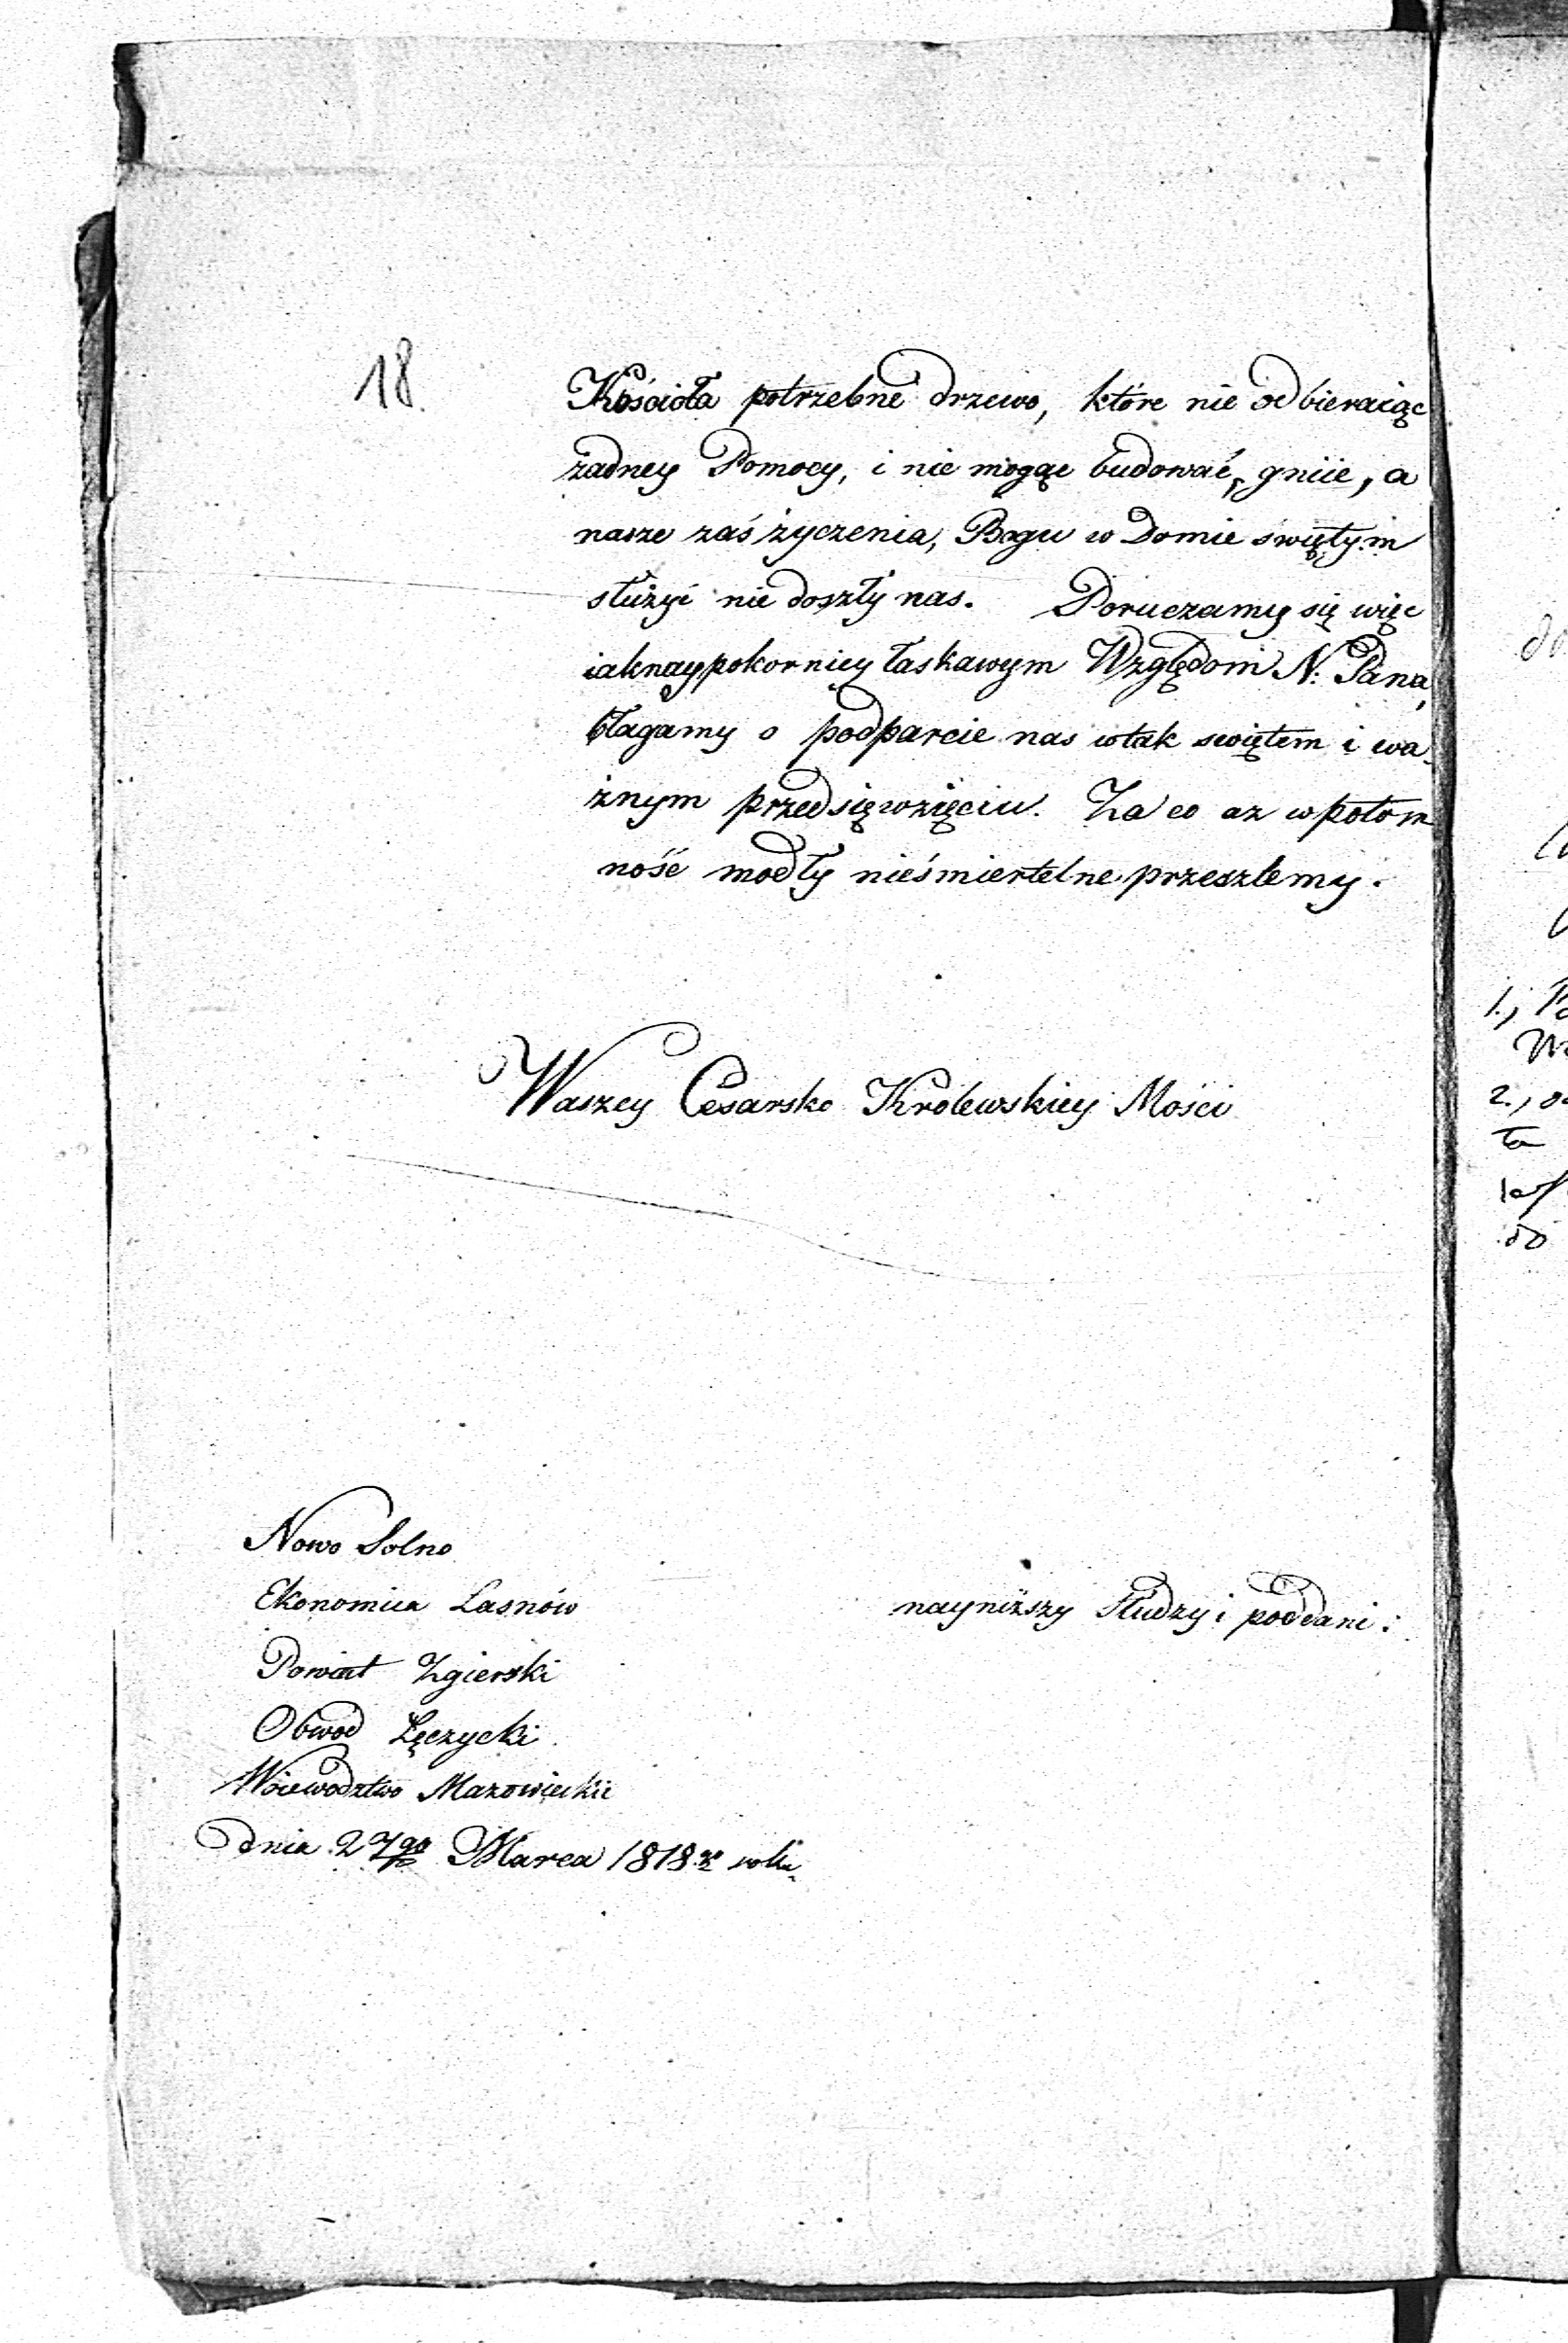 18.
Kościoła potrzebne drzewo, które nie odbieraiąc
żadney Pomocy, i nie mogąc budować, gniie, a
nasze zaś życzenia, Bogu w Domie świętym
służyć nie doszły nas. Poruczamy się więc
iaknaypokorniey łaskawym Względom N: Pana,
błagamy o podparcie nas wtak swiętem i wa-
żnym przedsięwzięciu. Za co az w potom
ność modły nieśmiertelne przeszlemy.
Waszey Cesarsko Królewskiey Mości
Nowo Solno
Ekonomiia Łasnów
naynižszy Słudzy i poddani:
Powiat Zgierski
Obwod Łęczycki
Woiewodztwo Mazowieckie
dnia 27go Marca 1818go roku
1.,
2.,
ła
do